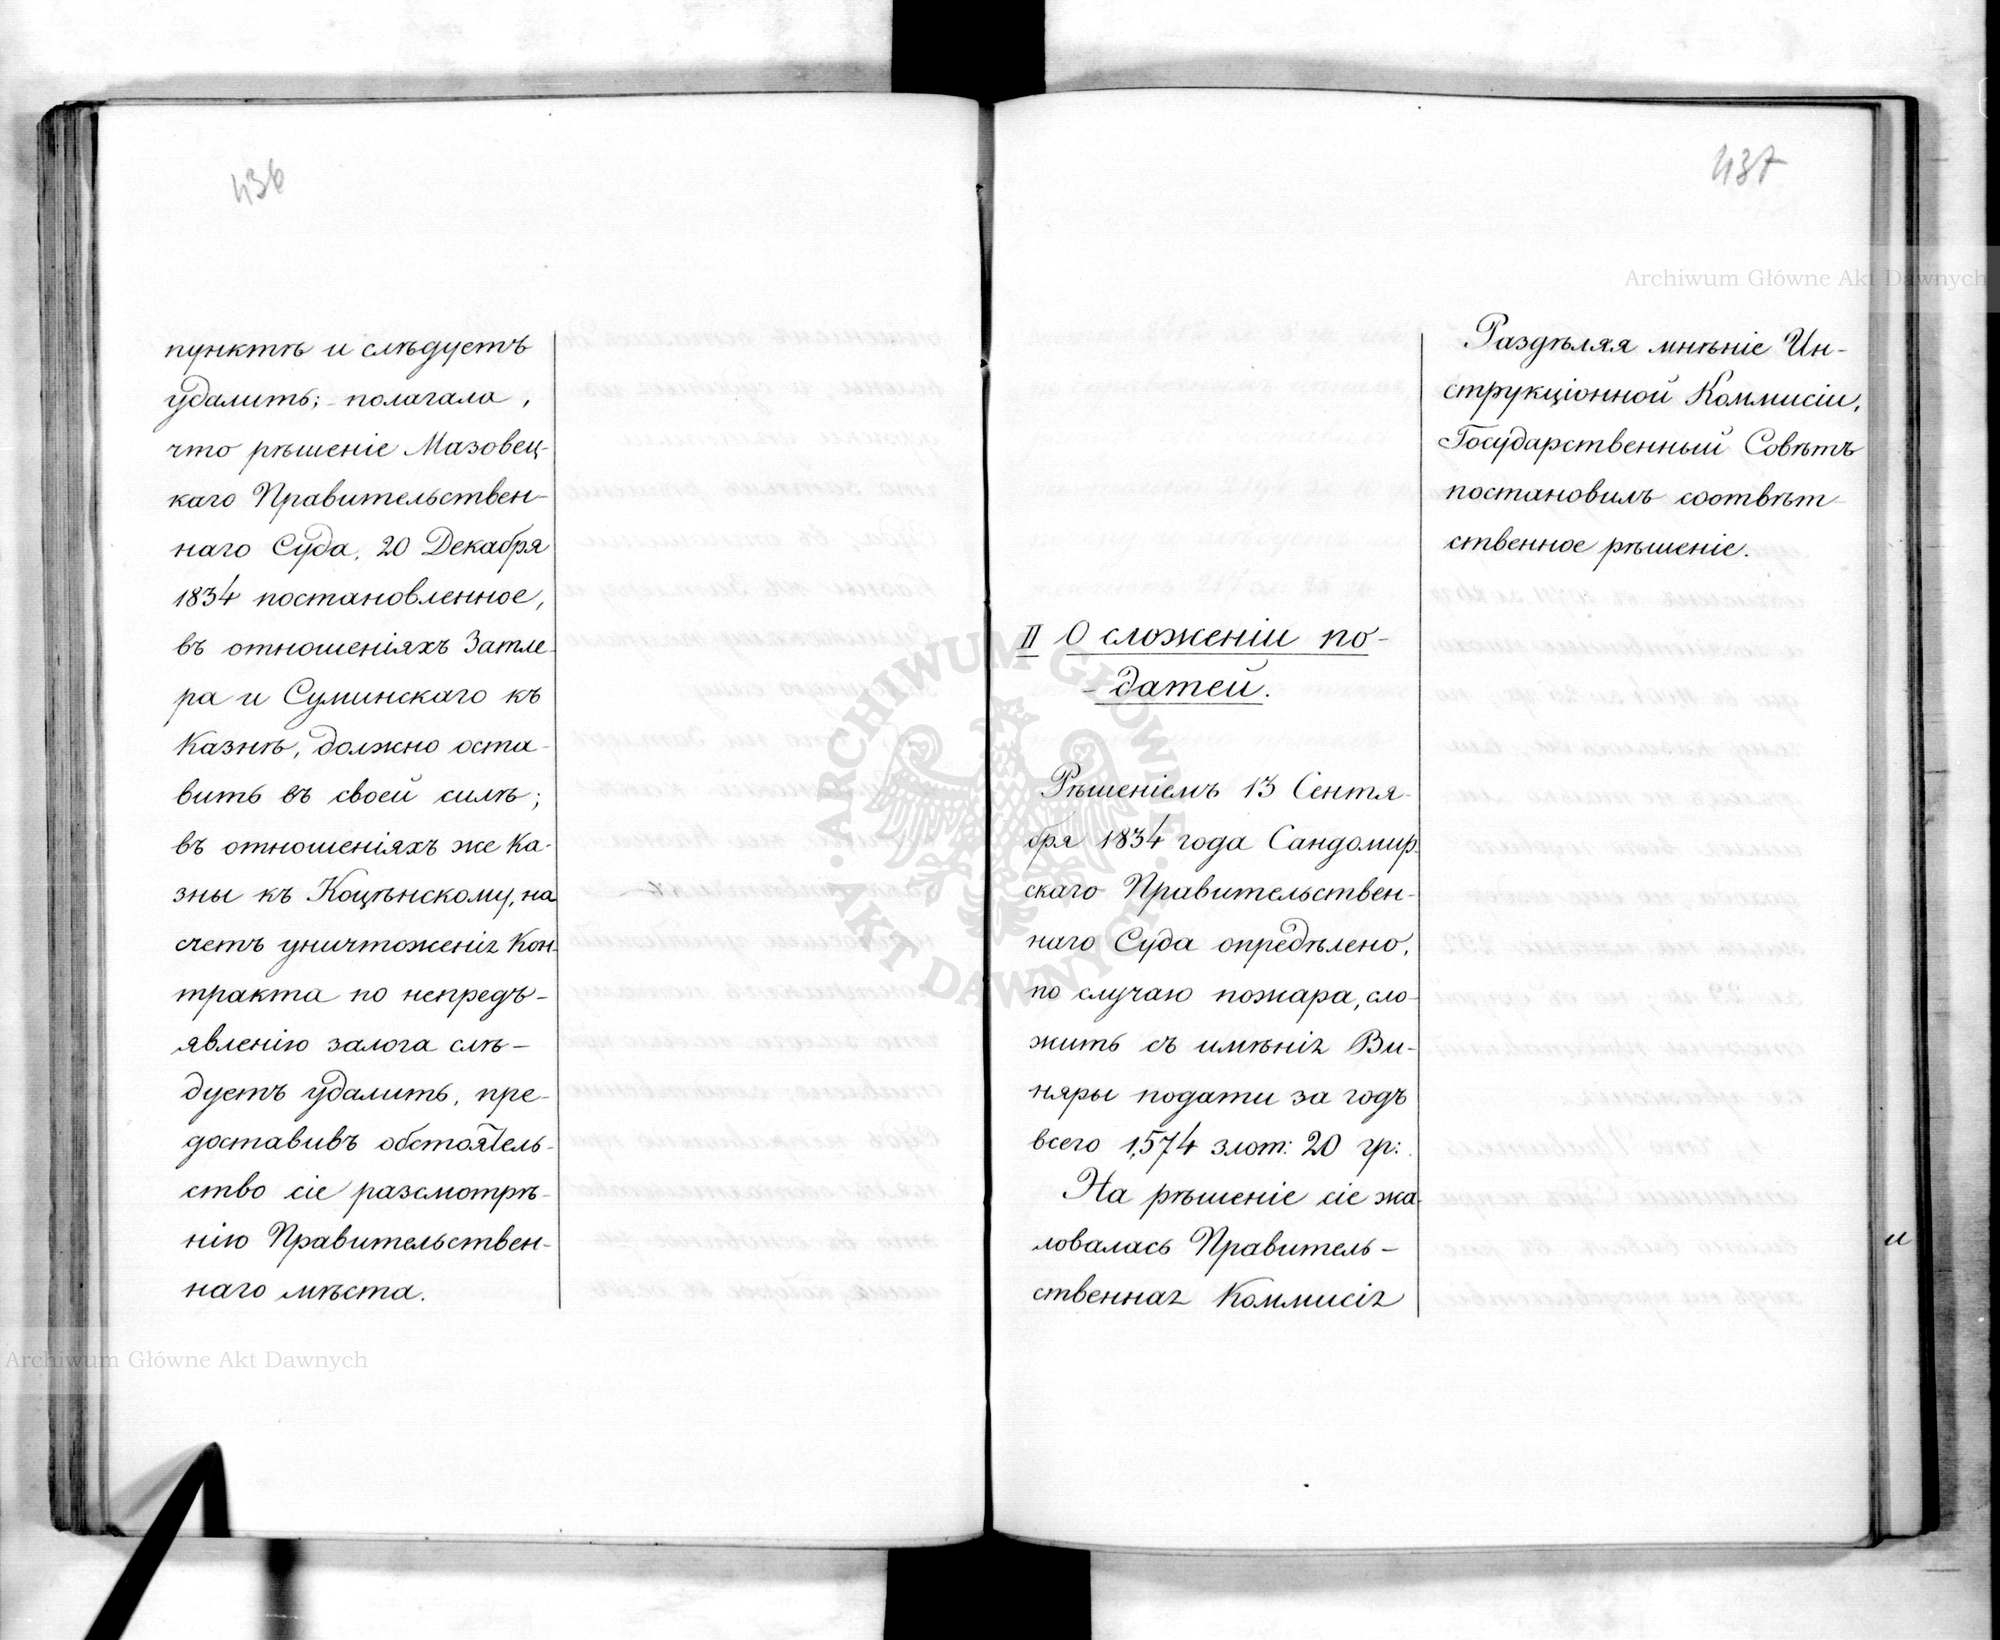 436
пунктѣ и слѣдуетъ
удалить; полагала,
что рѣшеніе Мазовец-
каго Правительствен-
наго Суда, 20 Декабря
1834 постановленное,
въ отношеніяхъ Затле-
ра и Суминскаго къ
Казнѣ, должно оста-
вить въ своей силѣ;
въ отношеніяхъ же Ка-
зны къ Коцѣнскому, на
счетъ уничтоженія Кон-
тракта по непредъ-
явленію залога слѣ-
дуетъ удалить, пре-
доставивъ обстоятель-
ство сіе разсмотрѣ-
нію Правительствен-
наго мѣста.
437
II О сложеніи по-
датей.
Рѣшеніемъ 13 Сентя-
бря 1834 года Сандомир-
скаго Правительствен-
наго Суда опредѣлено,
по случаю пожара, сло-
жить съ имѣнія Ви-
няры подати за годъ
всего 1,574 злот: 20 гр:
На рѣшеніе сіе жа-
ловалась Правитель-
ственная Коммисія
Раздѣляя мнѣніе Ин-
струкціонной Коммисіи,
Государственный Совѣтъ
постановилъ соотвѣт-
ственное рѣшеніе.
и
Archiwum Główne Akt Dawnych
ARCHIWUM GŁÓWNE
AKT DAWNYCH
Archiwum Główne Akt Dawnych